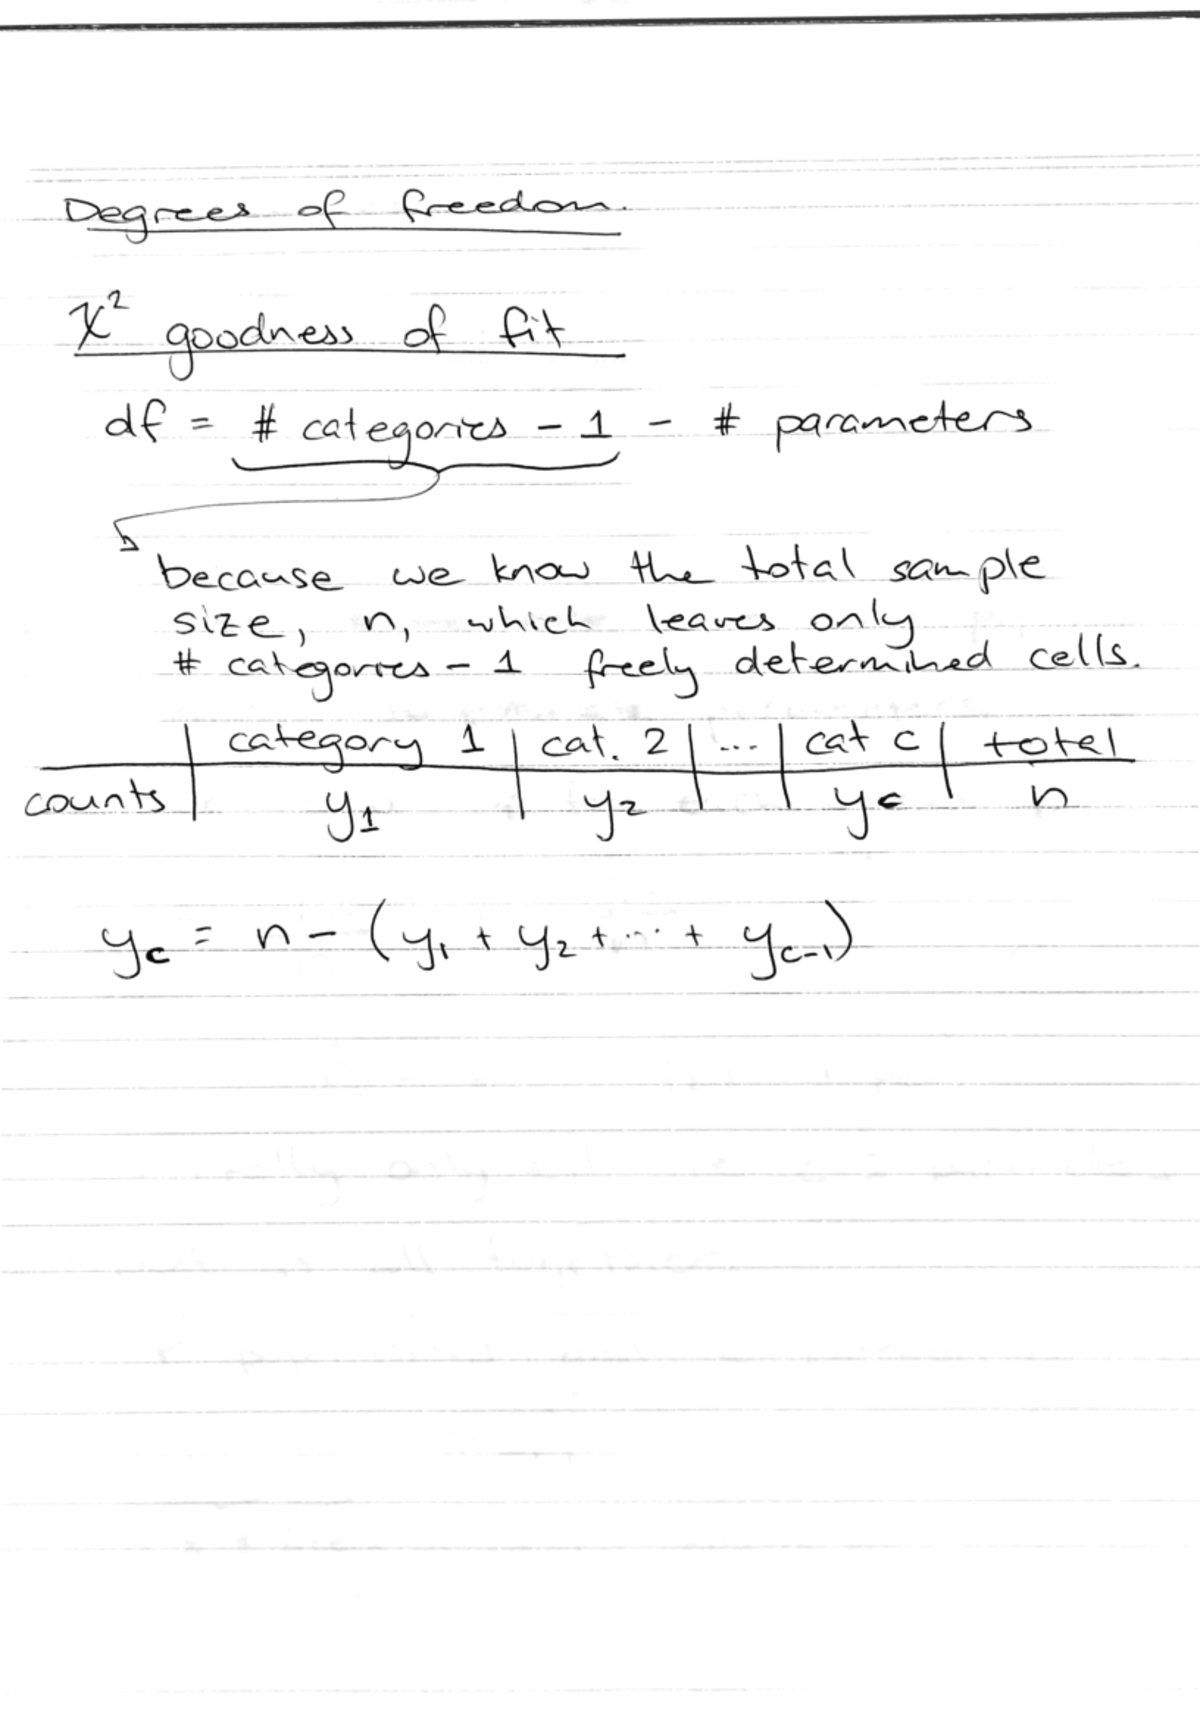 Degrees of freedom.
χ² goodness of fit
df = # categories - 1 - # parameters
because we know the total sample
size, n, which leaves only
# categories - 1 freely determined cells.
category 1 | cat. 2 | ... | cat c | total
counts | y₁ | y₂ | | yc | n
yc = n - (y₁ + y₂ + ... + yc-1)